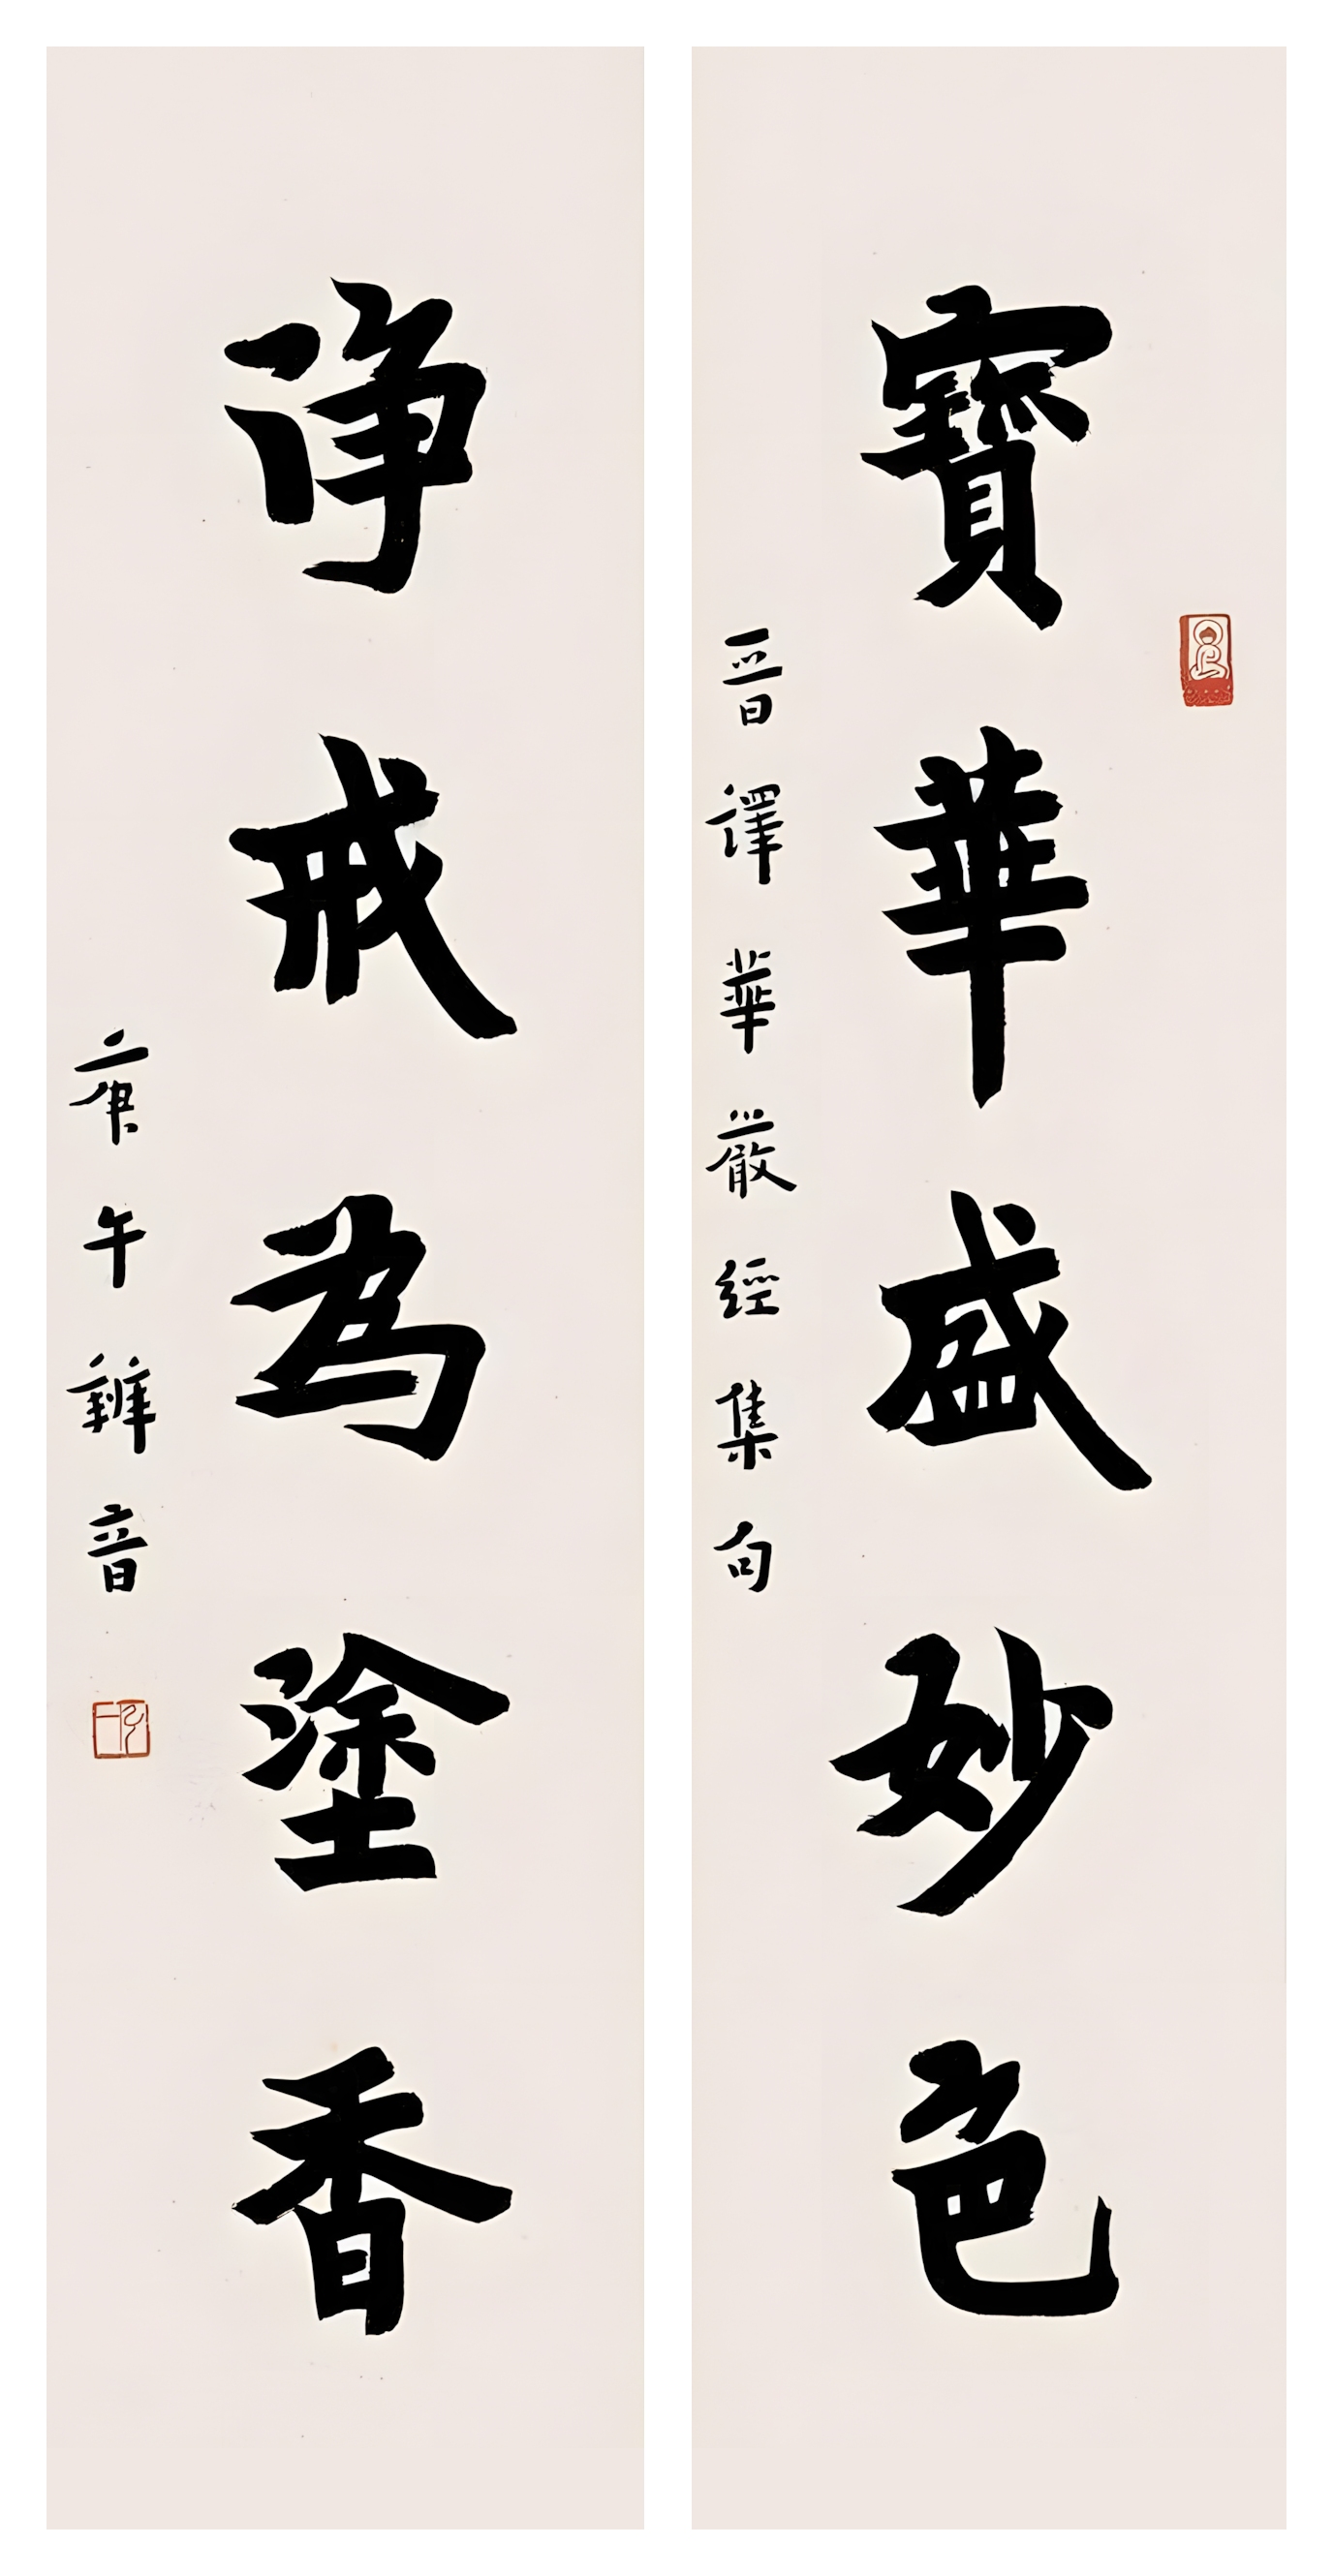 寶華盛妙色
晉譯華嚴經集句
淨戒為塗香
庚午辨音